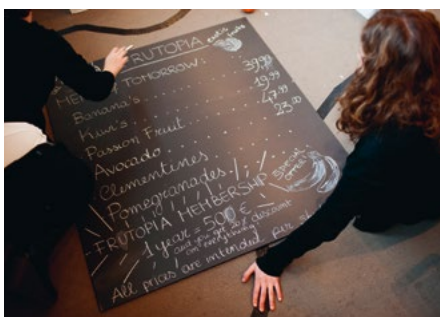 FRUTOPIA exotic fruits
MENU TOMORROW:
Banana's .......... 39,99
Kiwi's .......... 19,99
Passion Fruit .......... 47,99
Avocado .......... 23,00
Clementines
Pomegranades
SPECIAL OFFER!
FRUTOPIA MEMBERSHIP
1 year = 500 €
and you get 20% discount
on everything!
All prices are intended per